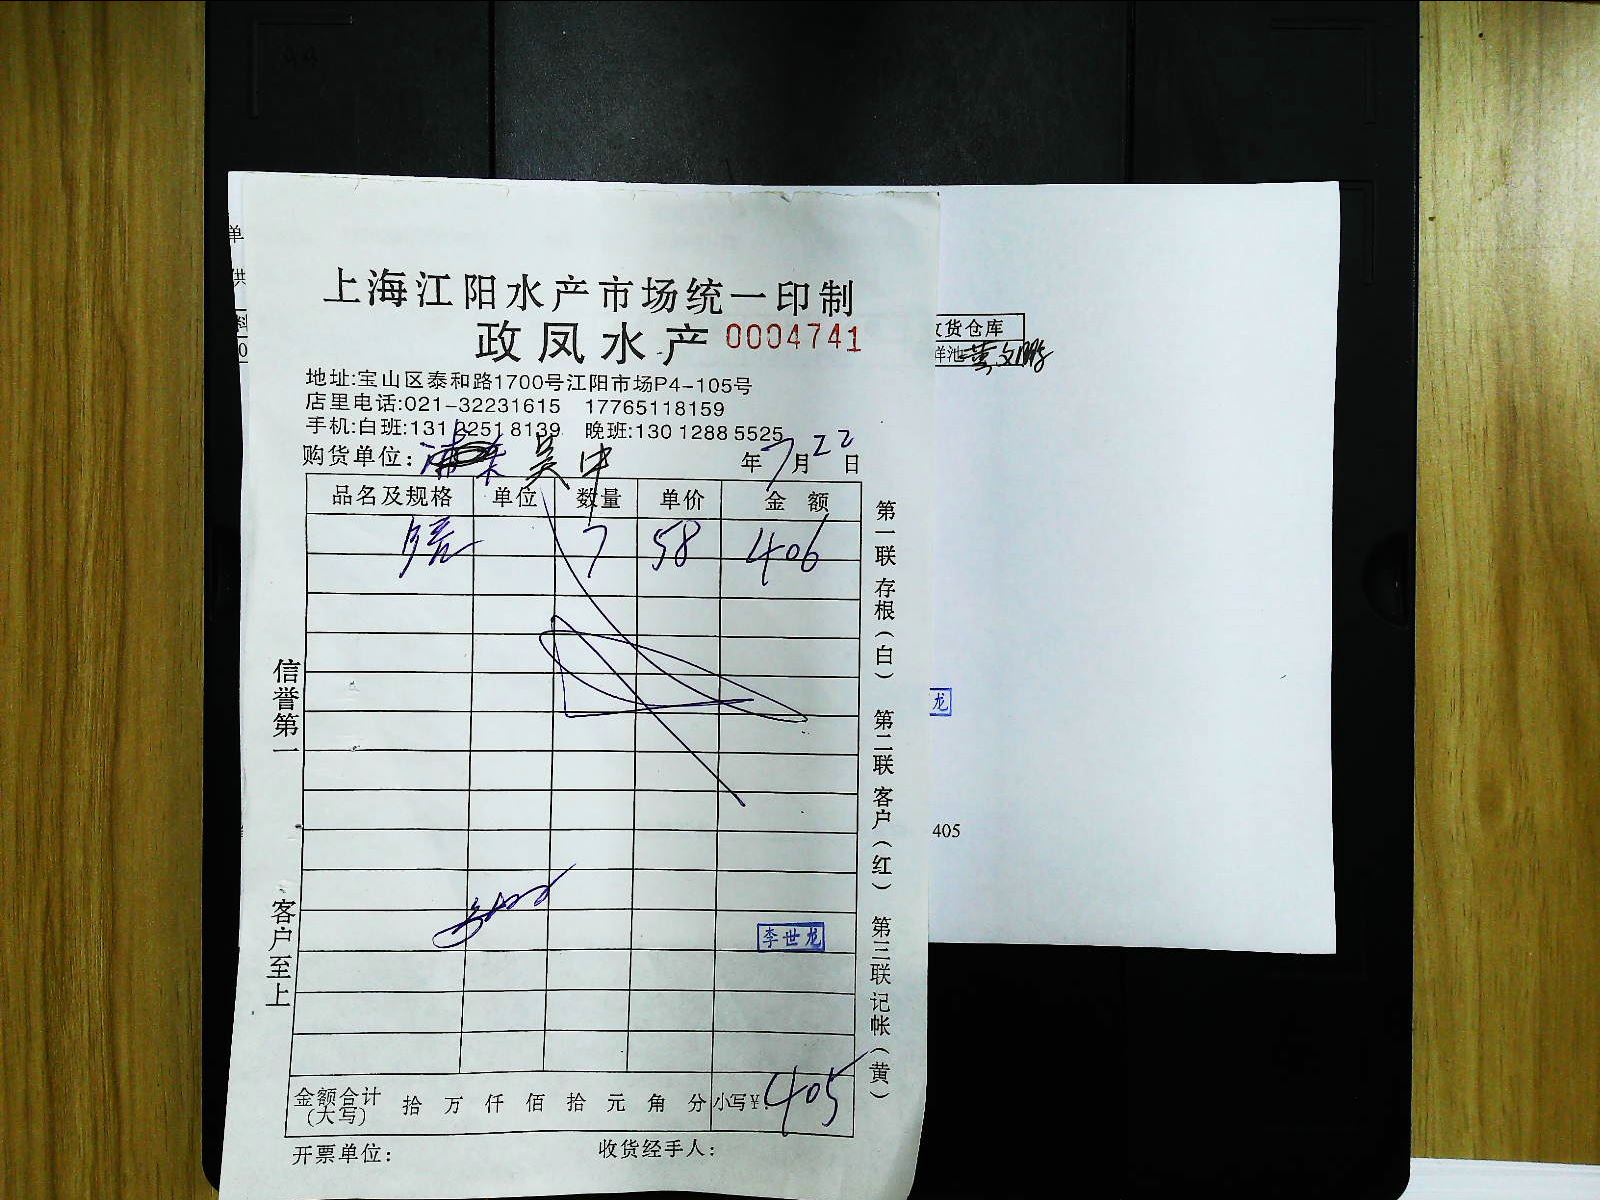 上海江阳水产市场统一印制
政凤水产 0004741
地址:宝山区泰和路1700号江阳市场P4-105号
店里电话:021-32231615 17765118159
手机:白班:131 8251 8139 晚班:130 1288 5525
购货单位: 吴中 年7月22日
品名及规格 单位 数量 单价 金额
7 58 406
信誉第一
客户至上
第一联存根(白) 第二联客户(红) 第三联记帐(黄)
李世龙
金额合计(大写) 拾 万 仟 佰 拾 元 角 分 小写¥: 405
开票单位: 收货经手人:
单
供
料
0
货仓库
样池
龙
405